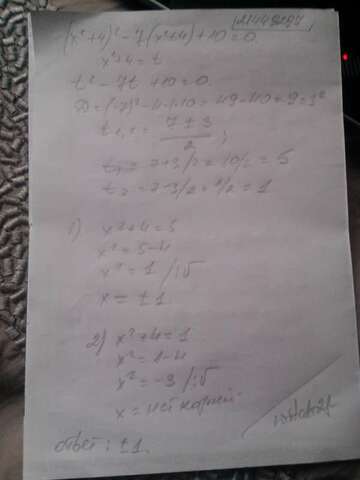 (x²+4)²-7(x²+4)+10=0
x²+4=t
t²-7t+10=0
D=(-7)²-4·1·10=49-40=9=3²
t₁,₂=7±3/2;
t₁=7+3/2=10/2=5
t₂=7-3/2=4/2=1
1) x²+4=5
x²=5-4
x²=1
x=±1
2) x²+4=1
x²=1-4
x²=-3
x=нет корней
ответ: ±1.